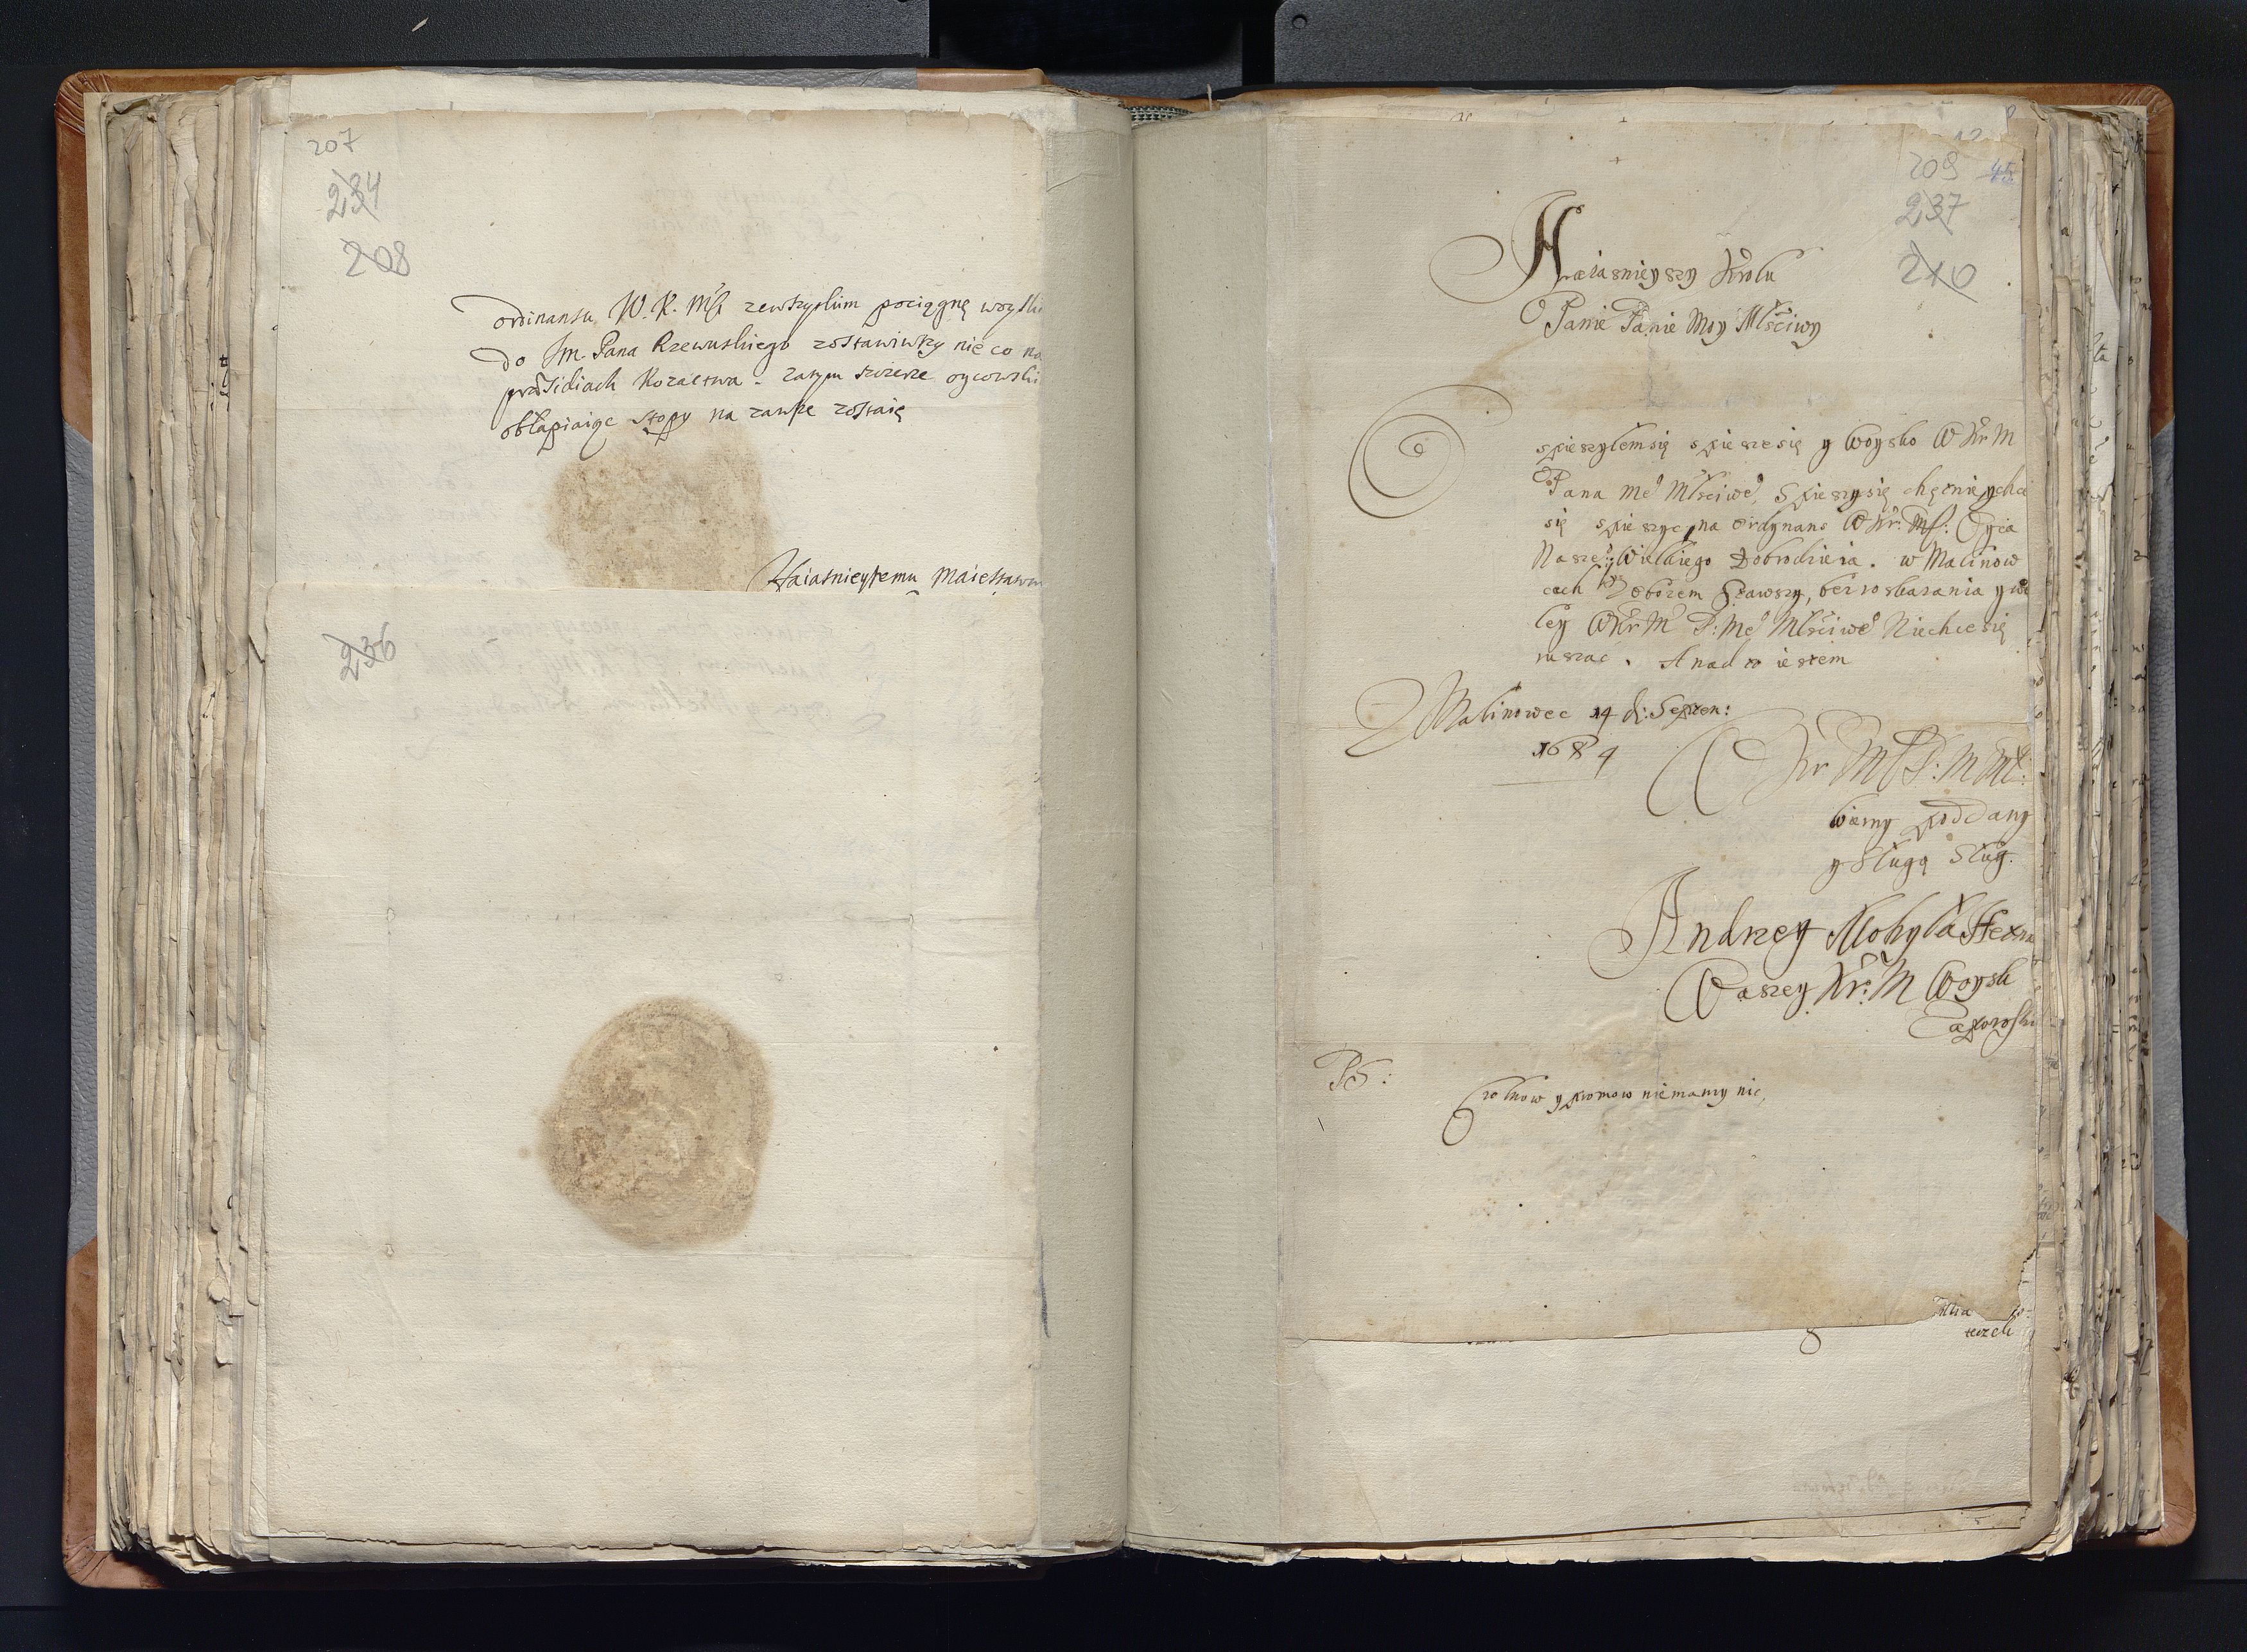 207
234
208
ordinansu W. K. Mśc zewszytkim pociągnę woysk
do Jm. Pana Rzewuskiego zostawiwszy nieco na
præsidiach Kozactwa. zatym swięte oycowski
obłapiaiąc stopy na zawsze zostaię
Naiasnieyszemu Maiestatow
236
209 45
237
210
Naiasnieyszy Krolu
Panie Panie Moy Młsciwy
spieszyłem się spiesze się y Woysko W Kr M
Pana Me° Młsciwe°, Spieszy się chętnie y chce
się spieszyc, na Ordynans W Kr: Mſ: Oyca
Nasze° y Wielkiego Dobrodzieia. w Malinow
cach Obozem Stawszy, bez roskazania y wo
ley W Kr M P: Me° Młsciwe° Niechce się
ruszac. A nad to iestem
Z Malinowec 14 d: Septen:
1684
W Kr M P: M Mł:
wierny poddany
y Sługa Sług.
Andrzey Mohyła Hetm
Waszey Kr: M Woysk
Zaporoski
PS:
Prochow y promow niemamy nic,